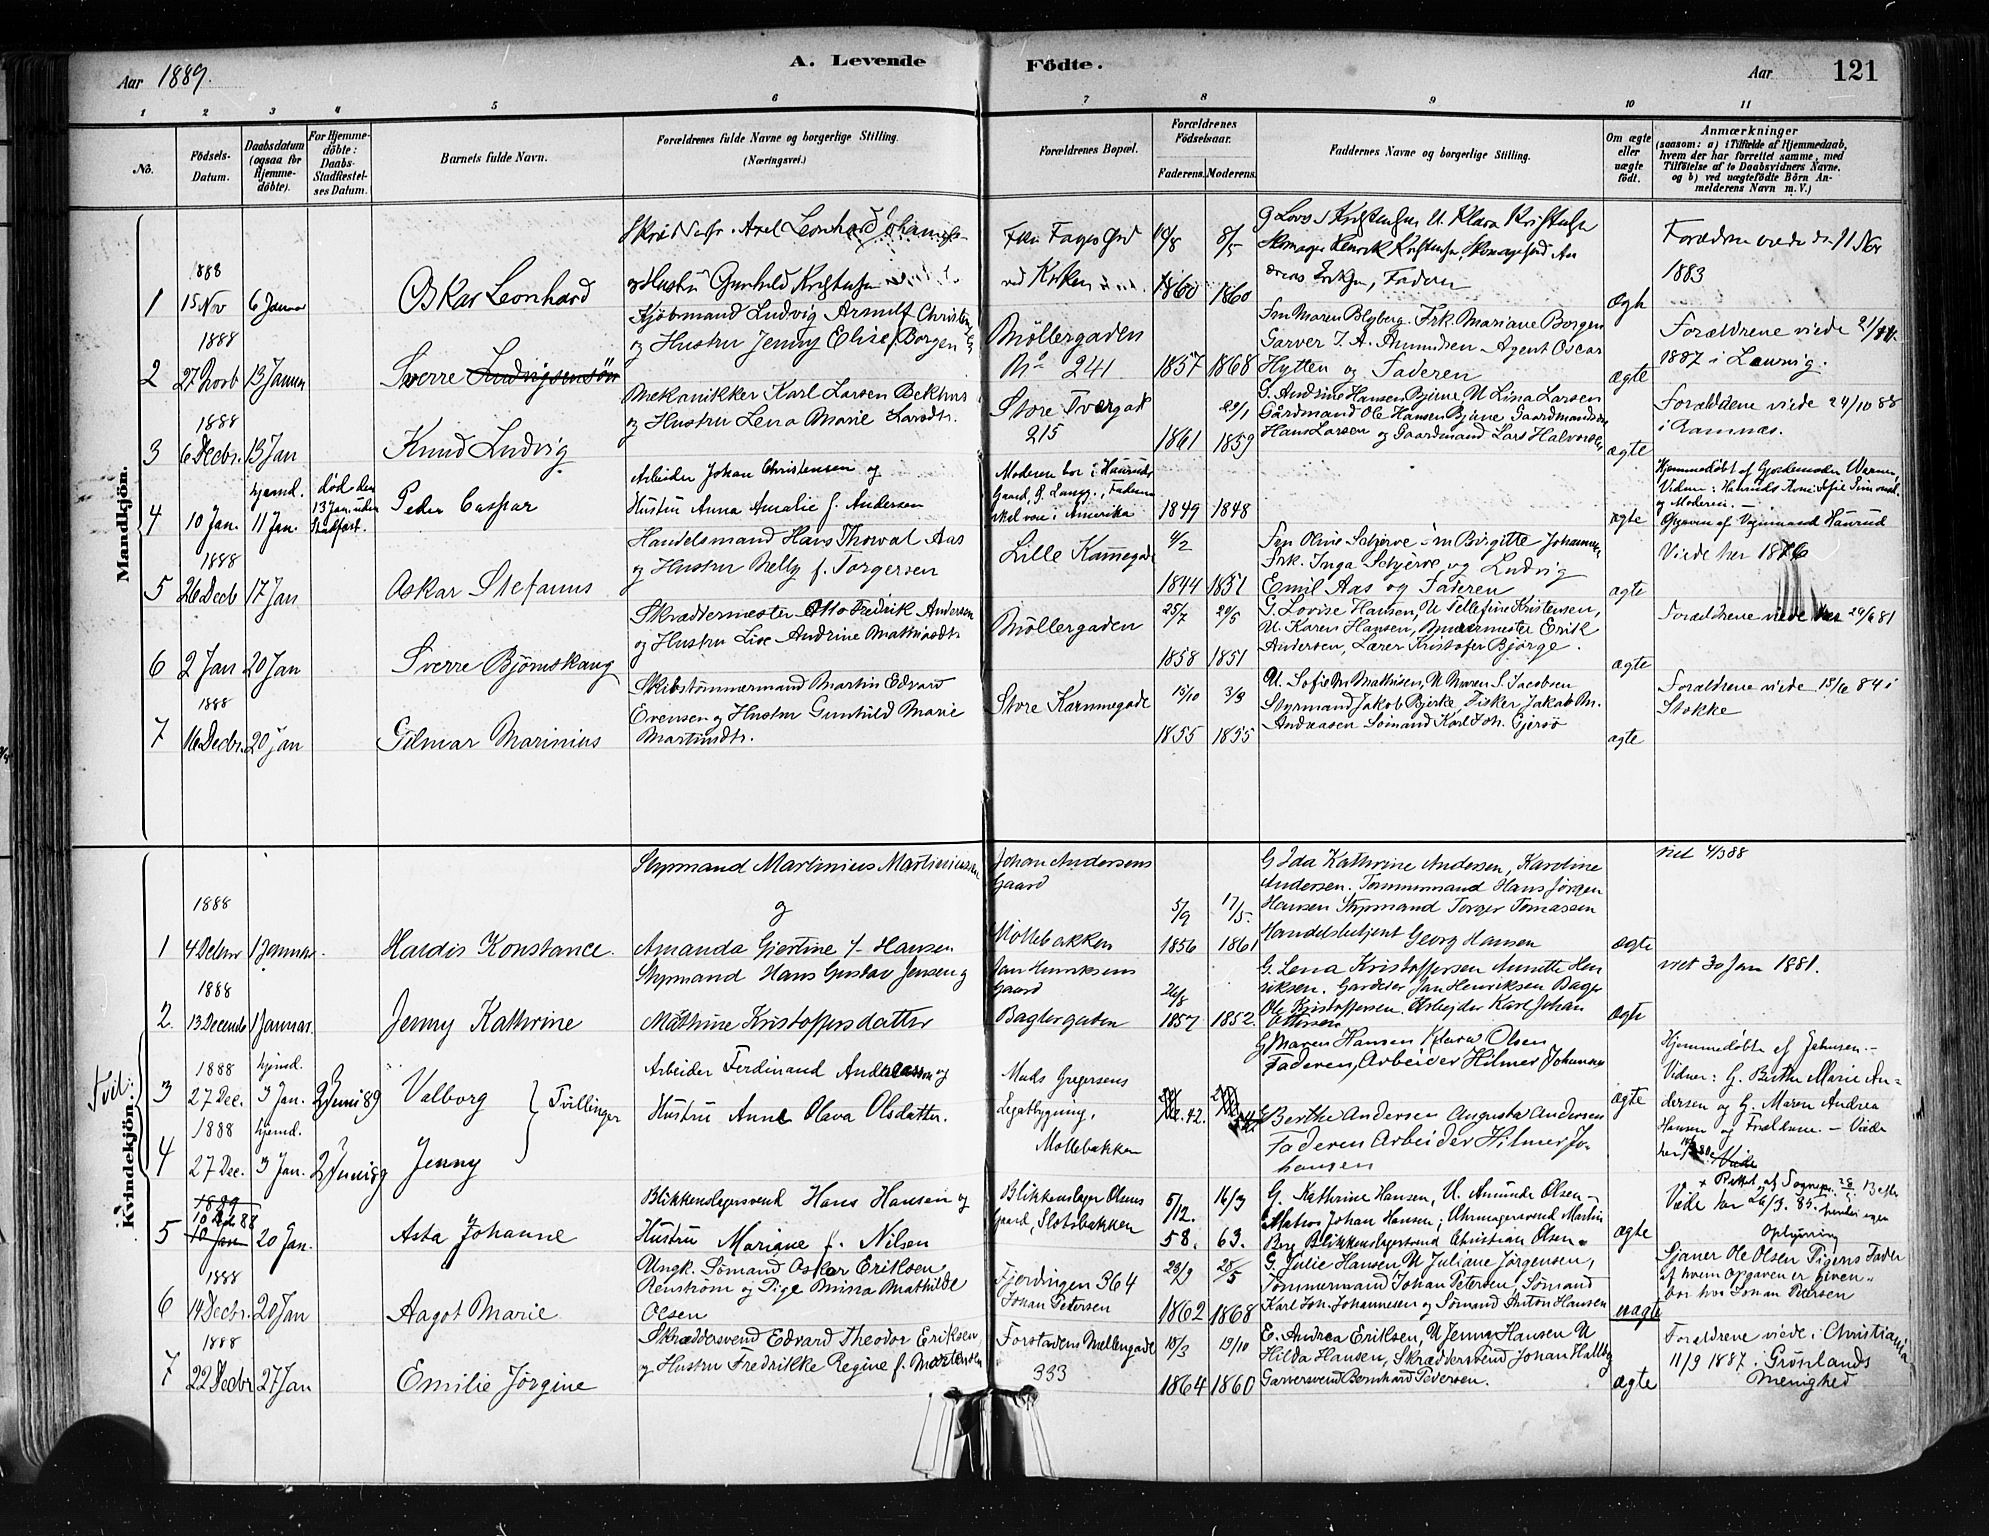 Aar 1889.
A. Levende Fødte.
Aar 121
1 2 3 4 5 6 7 8 9 10 11
No.
Fødsels-Datum.
Daabsdatum (ogsaa for Hjemmedøbte).
For Hjemmedøbte: Daabs-Stadfæstelses Datum.
Barnets fulde Navn.
Forældrenes fulde Navne og borgerlige Stilling. (Næringsvei.)
Forældrenes Bopæl.
Forældrenes Fødselsaar.
Faderens. Moderens.
Faddernes Navne og borgerlige Stilling.
Om ægte eller uægte født.
Anmærkninger
(saasom: a) i Tilfælde af Hjemmedaab,
hvem der har forrettet samme, med
Tilføielse af to Daabsvidners Navne.
og b) ved uægtefødte Børn Anmelderens Navn m. V.)
Mandkjön.
1
1888
15 Nov
6 Januar
Oskar Leonhard
Axel Leonhard
og Hustru Gunhild
1860 1860
Faderen
Ægte
1883
2
1888
27 Novb
13 Januar
Sverre Ludvigsensön
Kjøbmand Ludvig Arnulf
og Hustru Jenny Elise f. Borgen
Møllergaden
No 241
1857 1868
Fru Maren Blyberg. Frk. Mariane Borgen
Garver J. A. Amundsen Agent Oscar
Hytten og Faderen
ægte
Forældrene viede
1887 i Laurvig.
3
1888
6 Decbr.
13 Jan
Knud Ludvig
Mekanikker Karl Larsen
og Hustru Lena Marie Larsdt.
Store Tvergade
215
29/1
1861 1859
G. Andrine Hansen Bjune U Lina Larsen
Gårdmand Ole Hansen Bjune
Hans Larsen og Gaardmand Lars Halvorsen
ægte
Forældrene viede 24/10 88
i Ramnæs.
4
10 Jan.
hjemd.
11 Jan.
død den
13 Jan. uden
Stadfæst.
Peder Caspar
Arbeider Johan Christensen og
Hustru Anna Amalie f. Andersen
Moderen bor i Hauruds
Gaard, Faderen
skal være i Amerika
1849 1848
ægte
Hjemmedøbt af Gjordemoder
og Moderen. —
Opgaven af Vognmand Haurud
5
1888
26 Decb
17 Jan
Oskar Stefanus
Handelsmand Hans Thorval Aas
og Hustru Nelly f. Torgersen
Lille Kannegade
4/2
1844 1851
Fru Oline Schjerve Fru Birgitte Johannesen
Frk. Inga Schjerve og Ludvig
Emil Aas og Faderen
ægte
Viede her 1876
6
2 Jan
20 Jan
Sverre Bjørnskaug
Skræddermester Otto Fredrik Andersen
og Hustru Lise Andrine
Møllergaden
25/7 20/5
1858 1851
G. Lovise Hansen, U Pellefine Kristensen,
U. Karen Hansen, Murmester Erik
Andersen, Lærer Kristofer Bjørge.
ægte
Forældrene viede her 29/6 81
7
1888
16 Decbr.
20 Jan
Gilmar Marinius
Skibstømmermand Martin Edvard
Evensen og Hustru Gunhild Marie
Martinsdt.
Store Kannegade
15/10 3/9
1855 1855
U. Sofie M Mathisen, U Maren S. Jacobsen
Styrmand Jakob Bjerke, Fisker Jakob M.
Andreasen Sømand Karl Joh. Gjersø
ægte
Forældrene viede 15/6 84 i
Stokke
Kvindekjön.
1
1888
4 Decbr
1 Januar
Haldis Konstance.
Styrmand Martinius Martiniussen
og
Amanda Gjertine f. Hansen
Johan Andersens
Gaard
Møllebakken
5/9 17/5.
1856 1861
G Ida Kathrine Andersen, Karoline
Andersen. Tømmermand Hans Jørgen
Hansen Styrmand Torger Tomassen
Handelsbetjent Georg Hansen
ægte
viet 4/3 88
2.
1888
13 Decemb
1 Januar.
Jenny Kathrine
Styrmand Hans Gustav Jensen og
Mathine Kristoffersdatter
Jan Henriksens
Gaard
Baglergaten
26/8
1857 1852.
G. Lena Kristoffersen Annette Henriksen. Gardeder Jan Henriksen Bager
Ole Kristoffersen. Arbejder Karl Johan
Ottersen
Ægte
viet 30 Jan 1881.
Tvil:
3
1888
27 Dec.
hjemd.
3 Jan.
2 Juni 89
Valborg
Tvillinger
Arbeider Ferdinand Andreassen og
Hustru Anne Olava Olsdatter.
Mads Gregersens
Legatbygning,
Møllebakken
G Maren Hansen Klara Olsen
Faderen, Arbeider Hilmer Johannsen
ægte
Hjemmedøbte af Jehnsen. —
Vidner: G. Berthe Marie Andersen og G. Maren Andrea
Hansen og Forældrene. — Viede
4
1888
27 Dec.
hjemd.
3 Jan.
2 Juni 89
Jenny
G Berthe Andersen Augusta Andersen
Faderen Arbeider Hilmer Johansen
5
1889
10 Dec 88
10 Jan
20 Jan.
Asta Johanne
Blikkenslagersvend Hans Hansen og
Hustru Mariane f. Nilsen
Blikkenslager Olsens
Gaard, Slotsbakken
5/12. 16/3
58. 63.
G. Kathrine Hansen, U. Amunda Olsen —
Matros Johan Hansen; Uhrmagersvend Martin
Berg Blikkenslagersvend Christian Olsen.
ægte
Viede her 26/3. 85.
6
1888
14 Decbr.
20 Jan
Aagot Marie
Ungk. Sømand Oskar Eriksen
Renstrøm og Pige Minna Mathilde
Olsen
Fjerdingen 364
Johan Petersen
23/9 25/5
1862 1868
G. Julie Hansen U Juliane Jørgensen,
Tømmermand Johan Petersen, Sømand
Karl Joh. Johannesen og Sømand Anton Hansen
uægte
Oplysning
Sjauer Ole Olsen Pigens Fader
af hvem Opgaven er given.
bor hos Johan Petersen
7
1888
22 Decbr
27 Jan
Emilie Jørgine
Skræddersvend Edvard Theodor Eriksen
og Hustru Fredrikke Regine f. Mortensen
Forstadens Møllergade
333
18/3 19/10
1864 1860
E. Andrea Eriksen, U Jenny Hansen U
Hilda Hansen, Skræddersvend Johan Hallberg
Garversvend Bernhard Pedersen.
ægte
Forældrene viede i Christiania
11/9 1887. Grønlands
Menighed